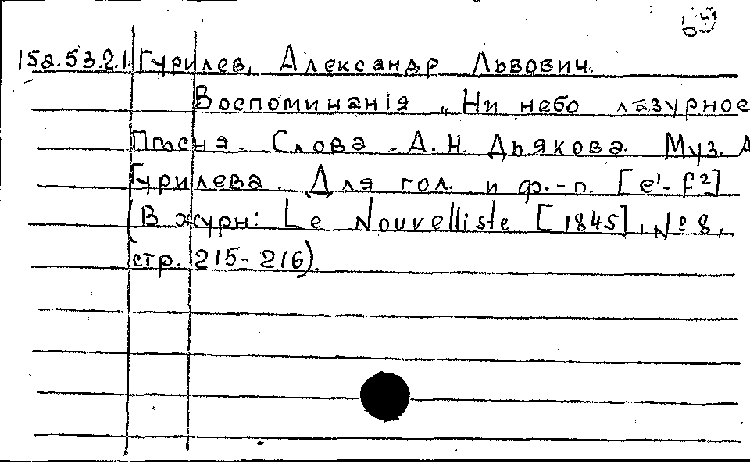 15а.53.2.1. Гурилев, Александр Львович.
Воспоминанія „Ни небо лазурное
Пѣсня. Слова А.Н. Дьякова. Муз. А
Гурилева. Для гол. и ф.-п. [e¹-f²]
(В журн: Le Nouvelliste [1845], № 8,
стр. 215-216).